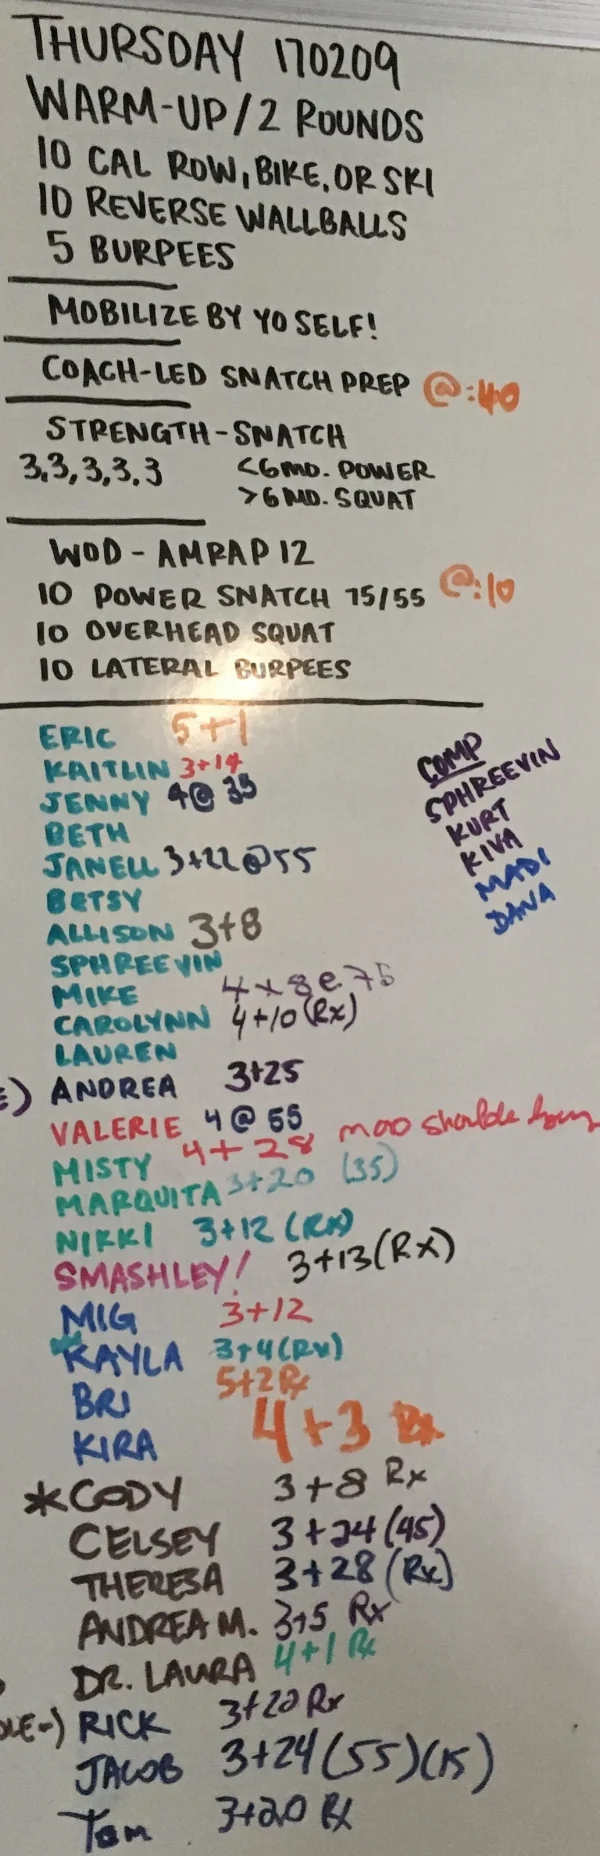 THURSDAY 170209
WARM-UP/2 ROUNDS
10 CAL ROW, BIKE, OR SKI
10 REVERSE WALLBALLS
5 BURPEES
MOBILIZE BY YO SELF!
COACH-LED SNATCH PREP @:40
STRENGTH-SNATCH
3,3,3,3,3 <6MO. POWER
>6MO. SQUAT
WOD - AMRAP 12
10 POWER SNATCH 75/55 @:10
10 OVERHEAD SQUAT
10 LATERAL BURPEES
ERIC 5+1
KAITLIN 3+14
JENNY 4@35
BETH
JANELL 3+22@55
BETSY
ALLISON 3+8
SPHREEVIN
MIKE 4+8@75
CAROLYNN 4+10 (Rx)
LAUREN
ANDREA 3+25
VALERIE 4@55
MISTY 4+28
MARQUITA 3+20 (35)
NIKKI 3+12 (Rx)
SMASHLEY! 3+13 (Rx)
MIG 3+12
KAYLA 3+4 (Rx)
BRI 5+2 Rx
KIRA 4+3 Rx
*CODY 3+8 Rx
CELSEY 3+24 (45)
THERESA 3+28 (Rx)
ANDREA M. 3+5 Rx
DR. LAURA 4+1 Rx
RICK 3+20 Rx
JACOB 3+24 (55)(15)
Tom 3+20 Rx
COMP
SPHREEVIN
KURT
KIVA
MADI
DANA